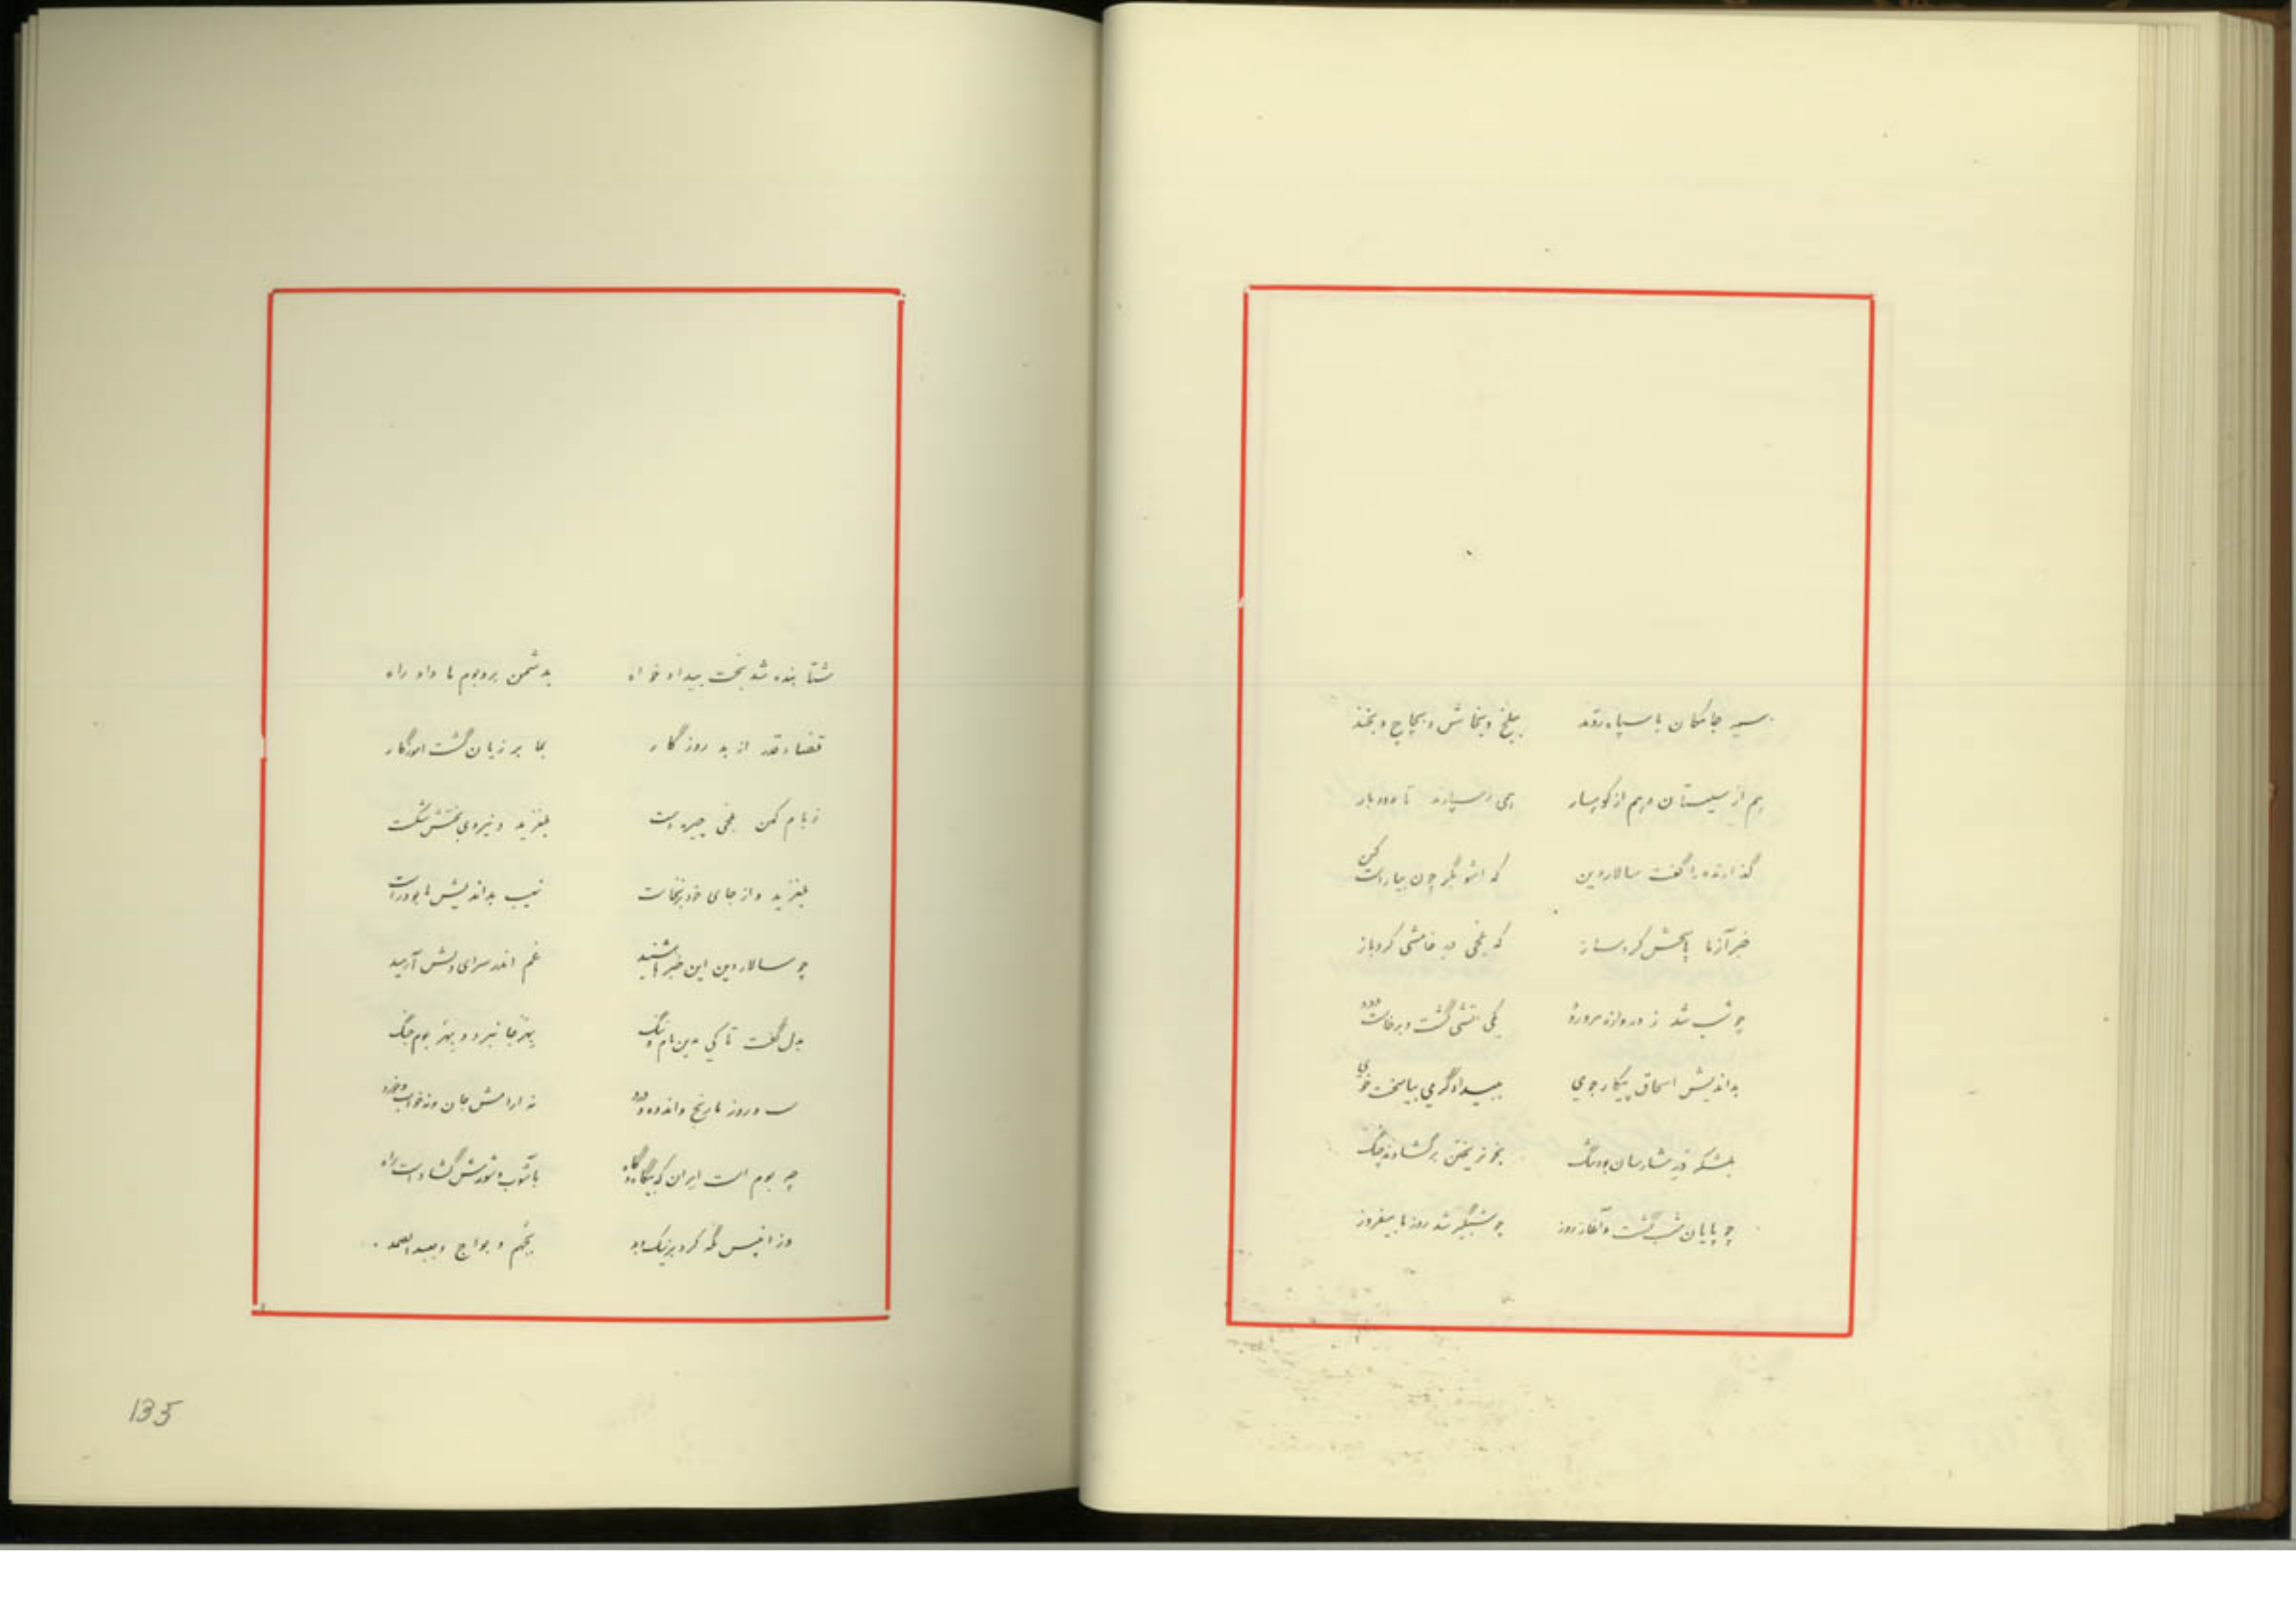 سیه جامگان با سپاه روند
ببلخ و بخاش و بچاچ و بخند
هم از سیستان و هم از کوهسار
همی ره سپارند تا رودبار
گذارنده را گفت سالار دین
که اشو بنگر چون بیاراست کین
خبر آزما پاسخش کرد ساز
که بلخی در خامشی کرد باز
چو شب شد ز دروازه مرورود
یکی گشت و برخاست دود
بداندیش اسحاق پیکار جوی
ببیدادگری بیامیخت خوی
بلشکر شارسان بود تنگ
بخونریختن برگشادند چنگ
چو پایان شب گشت و آغاز روز
چو شبگیر شد روز ما نیفروز
شتابنده شد بخت بیداد خواه
بدشمن بر و بوم ما داد راه
قضا و قدر از بد روزگار
بما بر زیان گشت آموزگار
ز بام کهن بلخی چیره دست
بلغزید و نیروی بختش شکست
بلغزید و از جای خود برنخاست
نهیب بداندیش ما بود راست
چو سالار دین این خبرها شنید
غم اندر سرای دلش آرمید
بدل گفت تا کی درین نام و ننگ
بهر جا نبرد و بهر بوم جنگ
شب و روز با رنج و اندوه و درد
نه آرامش جان و نه خواب و خورد
چه بوم است ایران که بیگاه و گاه
بآشوب و شورش گشاد است راه
وز آنپس نگه کرد بر نیک و بد
بجهم و بواج و بعبدالصمد
135